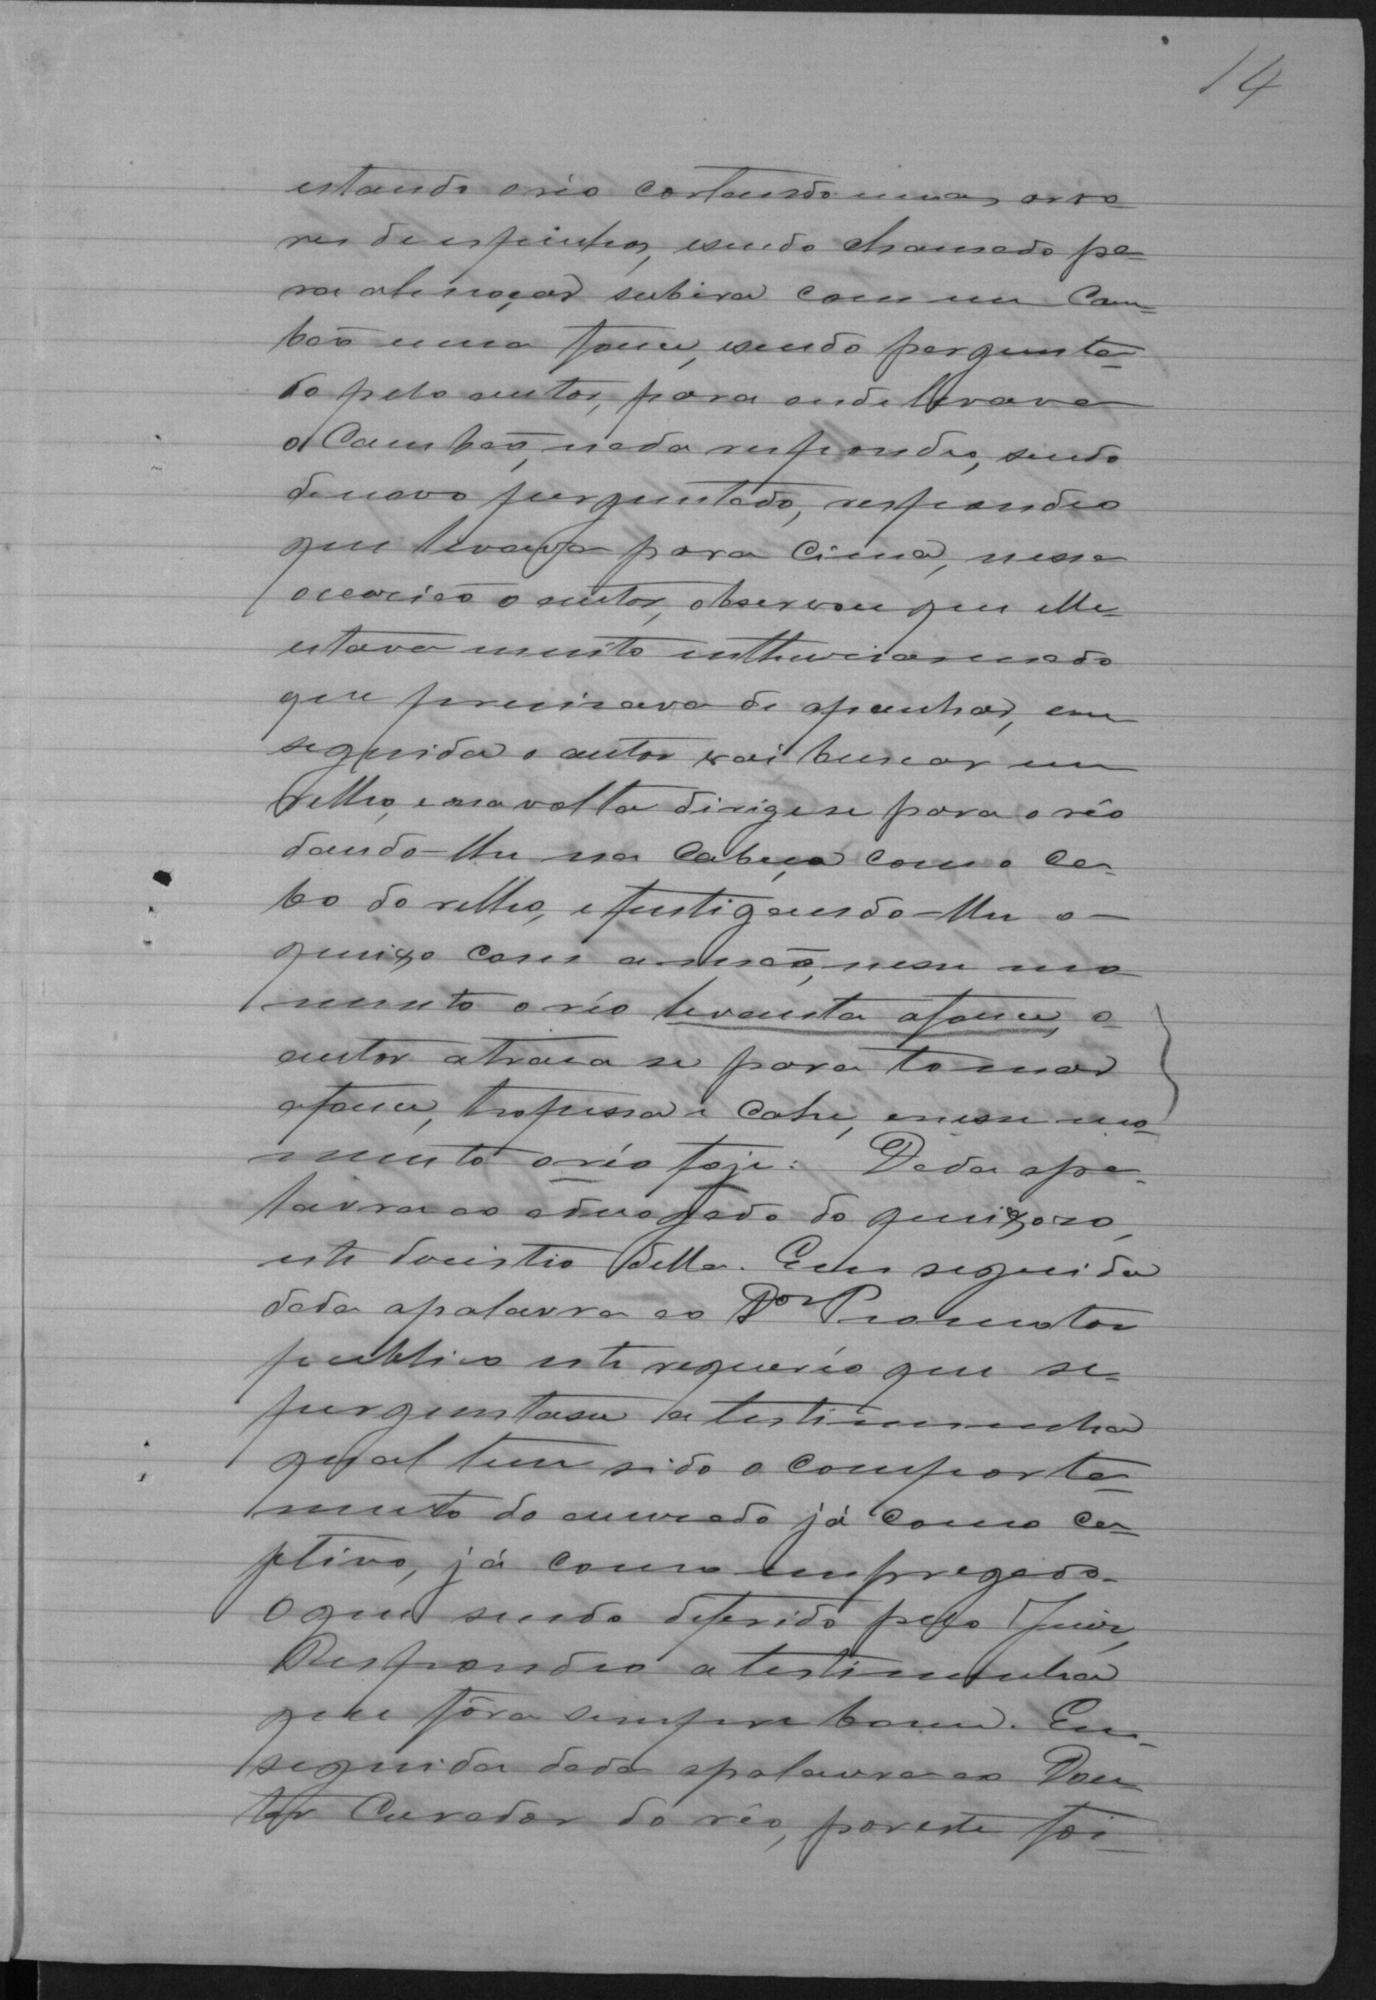 14
estando o réo cortando umas arvo-
res de espinhos, e sendo chamado pa-
ra almoçar subira com um Cam-
bão e uma fouce, e sendo pergunta-
do pelo autor, para onde levava
o Cambão, nada respondeo, sendo
de novo perguntado, respondeo
que levava para cima, nessa
occasião o autor, observou que elle
estava muito enthusiasmado
que precisava de apanhar, em
seguida o autor vai buscar um
relho, e na volta dirige se para o réo
dando-lhe na Cabeça com o Ca-
bo do relho, e fustigando-lhe o
queixo com a mão, nesse mo-
mento o réo levanta a fouce, o
autor atraca se para tomar
a fouce, tropessa e Cahe, e nesse mo-
mento o réo foje: Dada a pa-
lavra ao advogado do queixoso,
este desistio della. Em seguida
dada a palavra ao Dor Promotor
publico este requereo que se
perguntasse a testimunha
qual tem sido o comporta-
mento do accusado já como ca-
ptivo, já como empregado.
O que sendo deferido pelo Juiz,
Respondeo a testimunha
que fôra sempre bom. Em
seguida dada a palavra ao Dou-
tor Curador do réo, por este foi